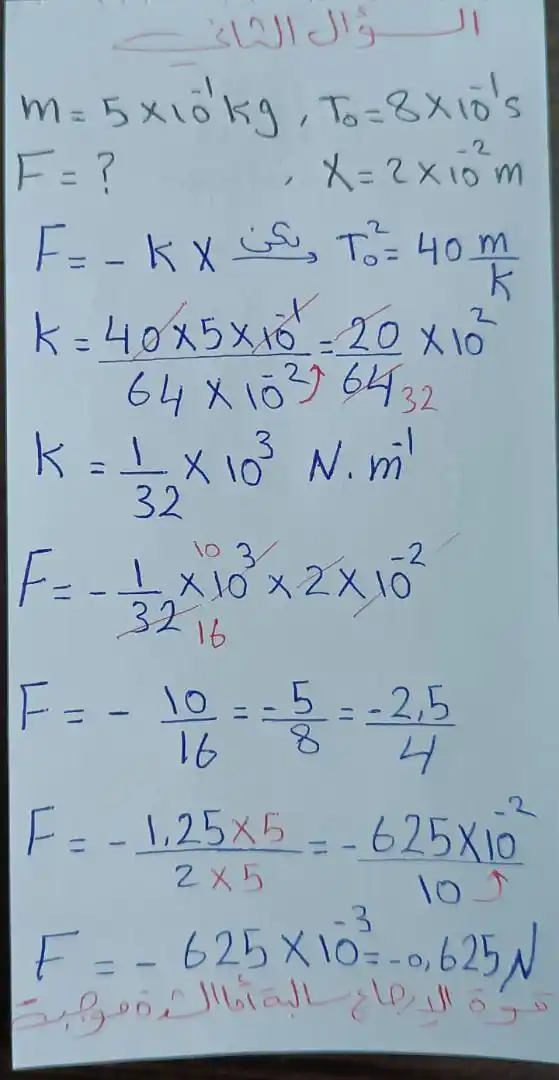 السؤال الثاني
m = 5 × 10⁻¹ kg , T₀ = 8 × 10⁻¹ s
F = ? , X = 2 × 10⁻² m
F = - K X لكن T₀² = 40 m/K
K = 40 × 5 × 10⁻¹ / 64 × 10⁻² = 20/64 32 × 10²
K = 1/32 × 10³ N . m⁻¹
F = - 1/32 16 × 10³ 10 × 2 × 10⁻²
F = - 10/16 = - 5/8 = - 2,5/4
F = - 1,25 × 5 / 2 × 5 = - 625 × 10⁻² / 10
F = - 625 × 10⁻³ = - 0,625 N
قوة الإرجاع سالبة أما الشدة موجبة